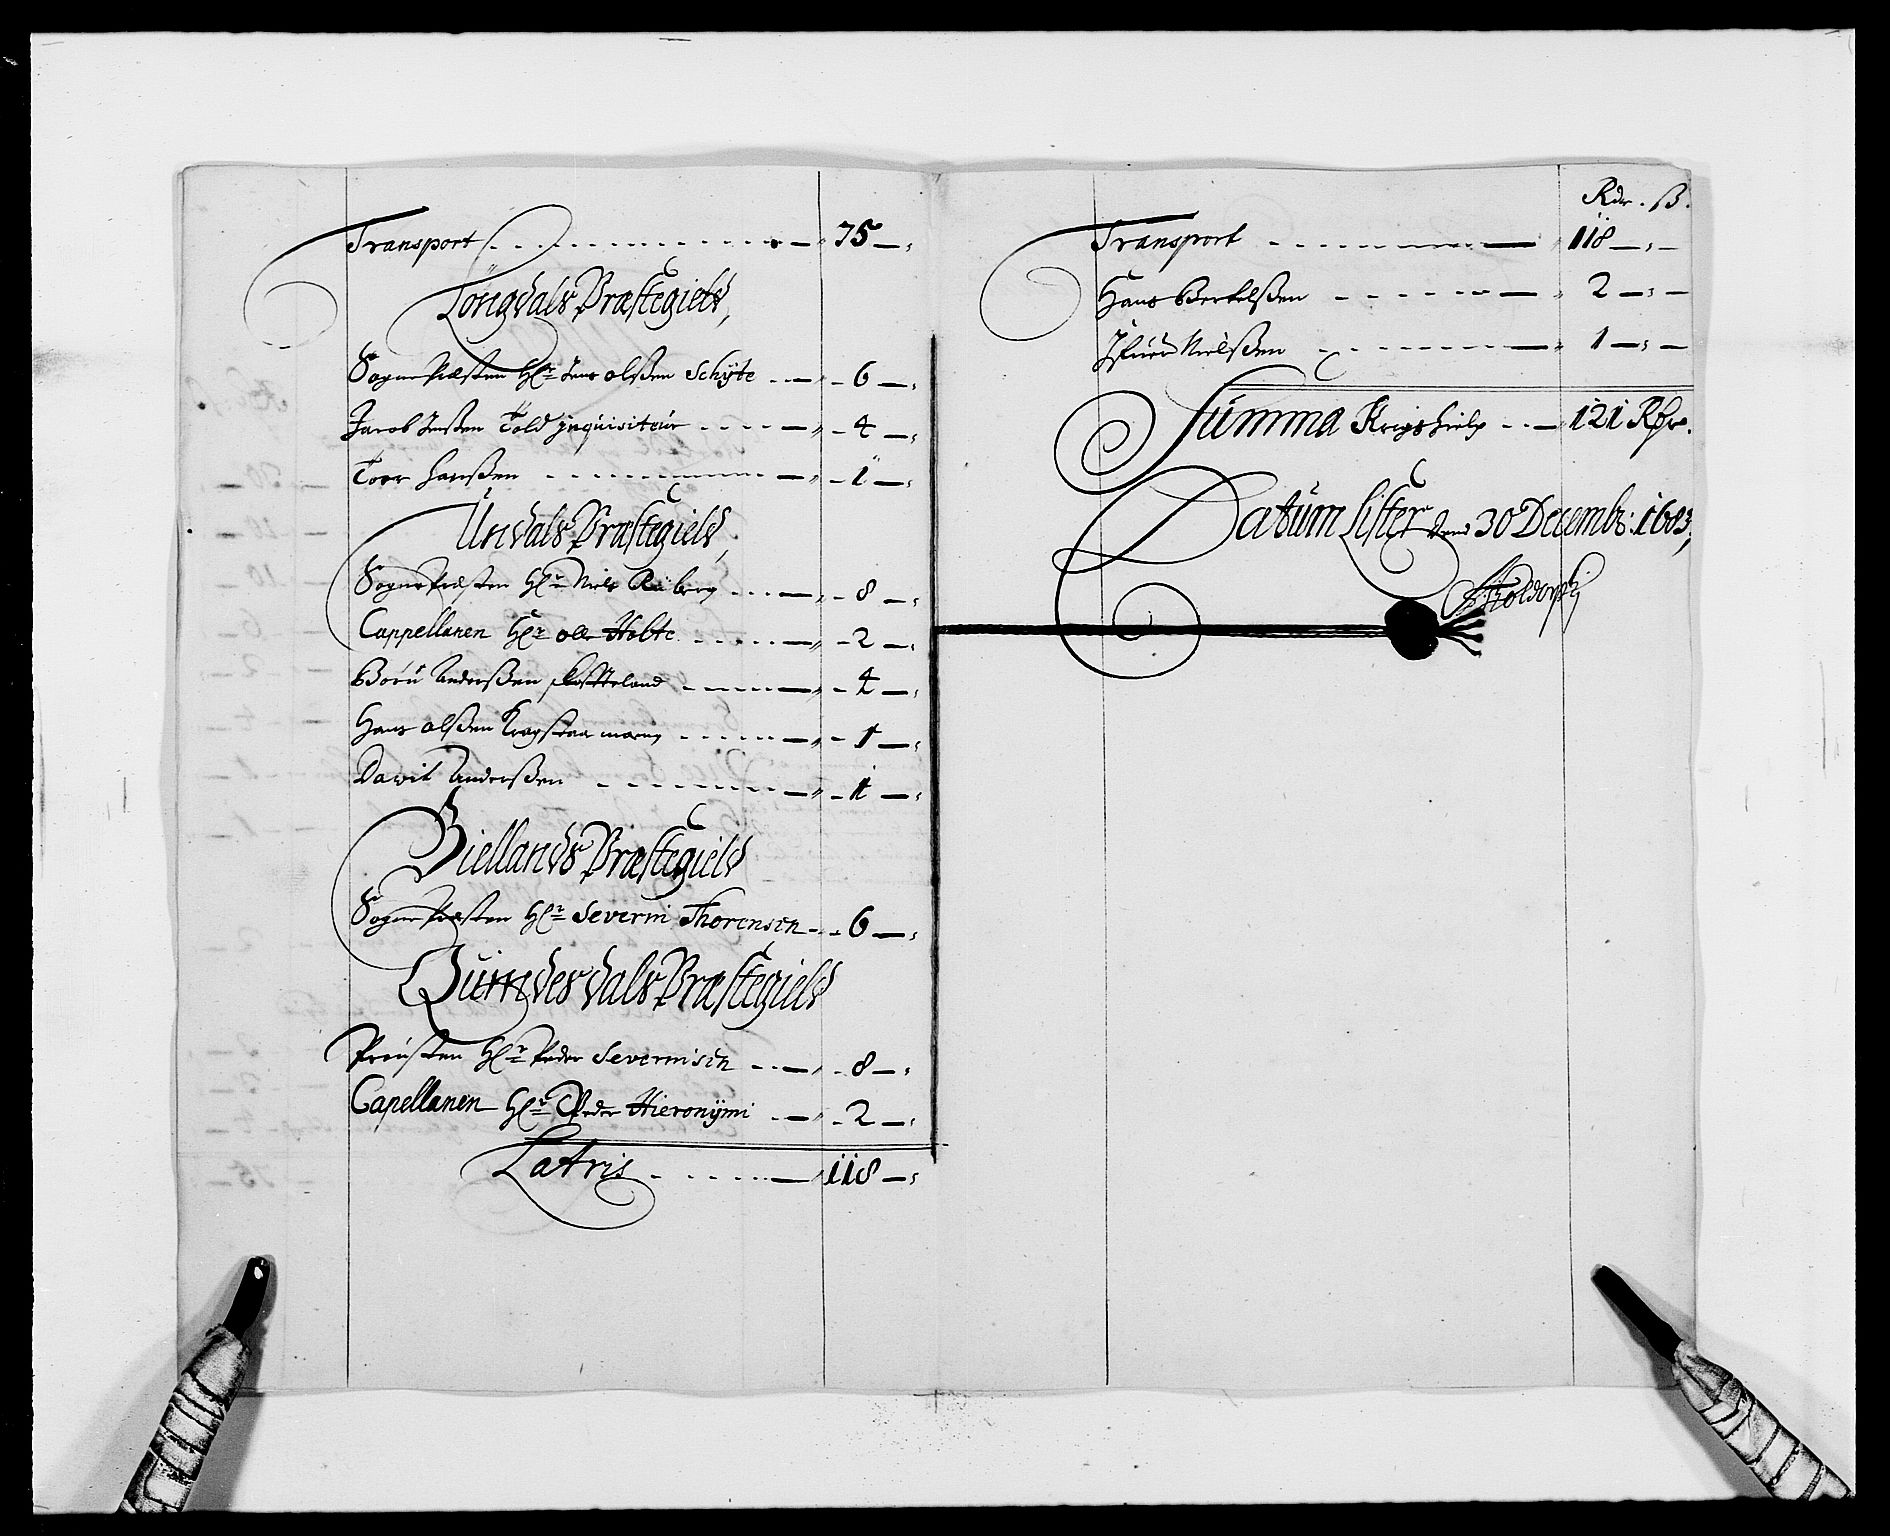 Transport . . . . . . . . . . 75 — ;
Löngdals Præstegield,
SognePræsten Hr. Jens Olßen Schÿte . . — 6 — ;
Jacob Jenßen Told jnquisiteur . . . . — 4 — ;
Toor Hanßen . . . . . . . . — 1 — ;
Undals Præstegield,
SognePræsten Hr. Niels Raaberg . . . — 8 — ;
Cappellanen Hr. Olle Holte . . . . — 2 — ;
Börü Anderßen . . . . — 4 — ;
Hans Olßen . . . . — 1 — ;
Davit Anderßen . . . . . . . — 1 — ;
Biellands Præstegield
SognePræsten Hr. Severin Thorensen . . 6 — ;
Quindesdals Præstegield
Prousten Hr. Peder Severinsen . . . — 8 — ;
Capellanen Hr. Peder Hieronÿmi . . — 2 — ;
Latris . . . . . . — 118 — ;
Rdr. ß.
Transport . . . . . . . . — 118 — ; —
Hans Bertelßen . . . . . . — 2 — ; —
Ifuer Nielßen . . . . . . . — 1 — ; —
Summa Krigshielp . . — 121 Rdr.
Datum Lister dend 30 Decemb: 1683,